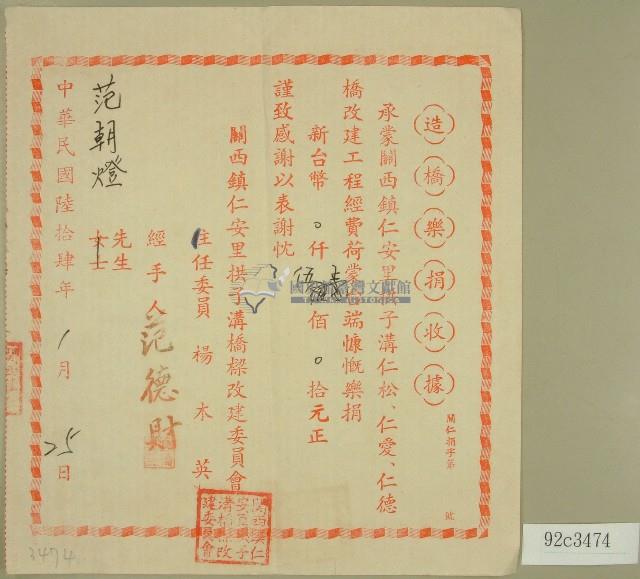 造橋樂捐收據
關仁捐字第 號
承蒙關西鎮仁安里拱子溝仁松、仁愛、仁德
橋改建工程經費荷蒙台端慷慨樂捐
新台幣 0 仟 伍 佰 0 拾元正
謹致感謝以表謝忱
關西鎮仁安里拱子溝橋樑改建委員會
主任委員 楊木英
經手人 范德財
范朝燈 先生
女士
中華民國陸拾肆年 1 月 25 日
3474
92c3474